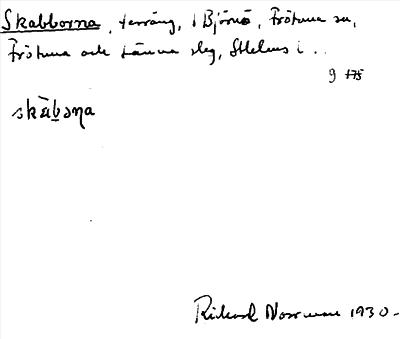 Skabborna, terräng, i Björnö, Frötuna sn,
Frötuna och Länna slg, Sthlms l.
9 175
skàb̠əɳa
Rickard Norrman 1930.